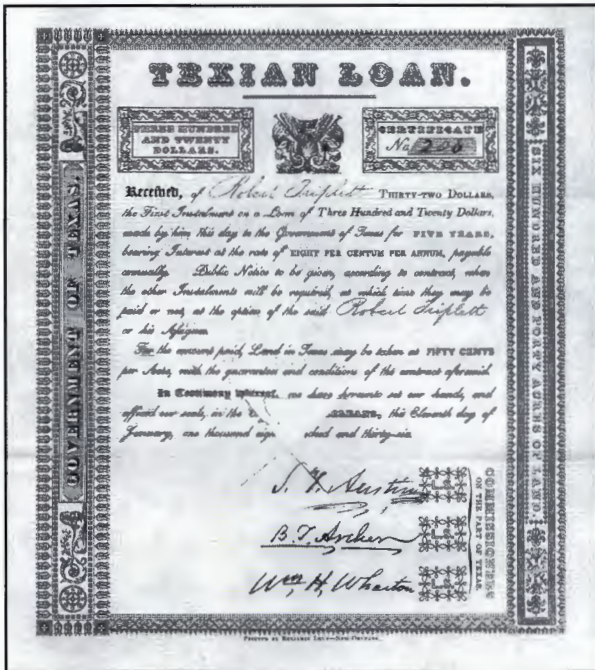 TEXIAN LOAN.
THREE HUNDRED
AND TWENTY
DOLLARS.
CERTIFICATE
No. 206
Received, of Robert Triplett THIRTY-TWO DOLLARS,
the First Instalment on a Loan of Three Hundred and Twenty Dollars,
made by him this day to the Government of Texas for FIVE YEARS,
bearing Interest at the rate of EIGHT PER CENTUM PER ANNUM, payable
annually. Public Notice to be given, according to contract, when
the other Instalments will be required, at which time they may be
paid or not, at the option of the said Robert Triplett
or his Assigns.
For the amount paid, Land in Texas may be taken at FIFTY CENTS
per Acre, with the guarantees and conditions of the contract aforesaid.
In Testimony whereof, we have hereunto set our hands, and
affixed our seals, in the this Eleventh day of
January, one thousand and thirty-six.
S. F. Austin
B. T. Archer
Wm. H. Wharton
L.S.
L.S.
L.S.
COMMISSIONERS
ON THE PART OF TEXAS
GOVERNMENT OF TEXAS.
SIX HUNDRED AND FORTY ACRES OF LAND
PRINTED BY BENJAMIN LEVY—NEW ORLEANS.